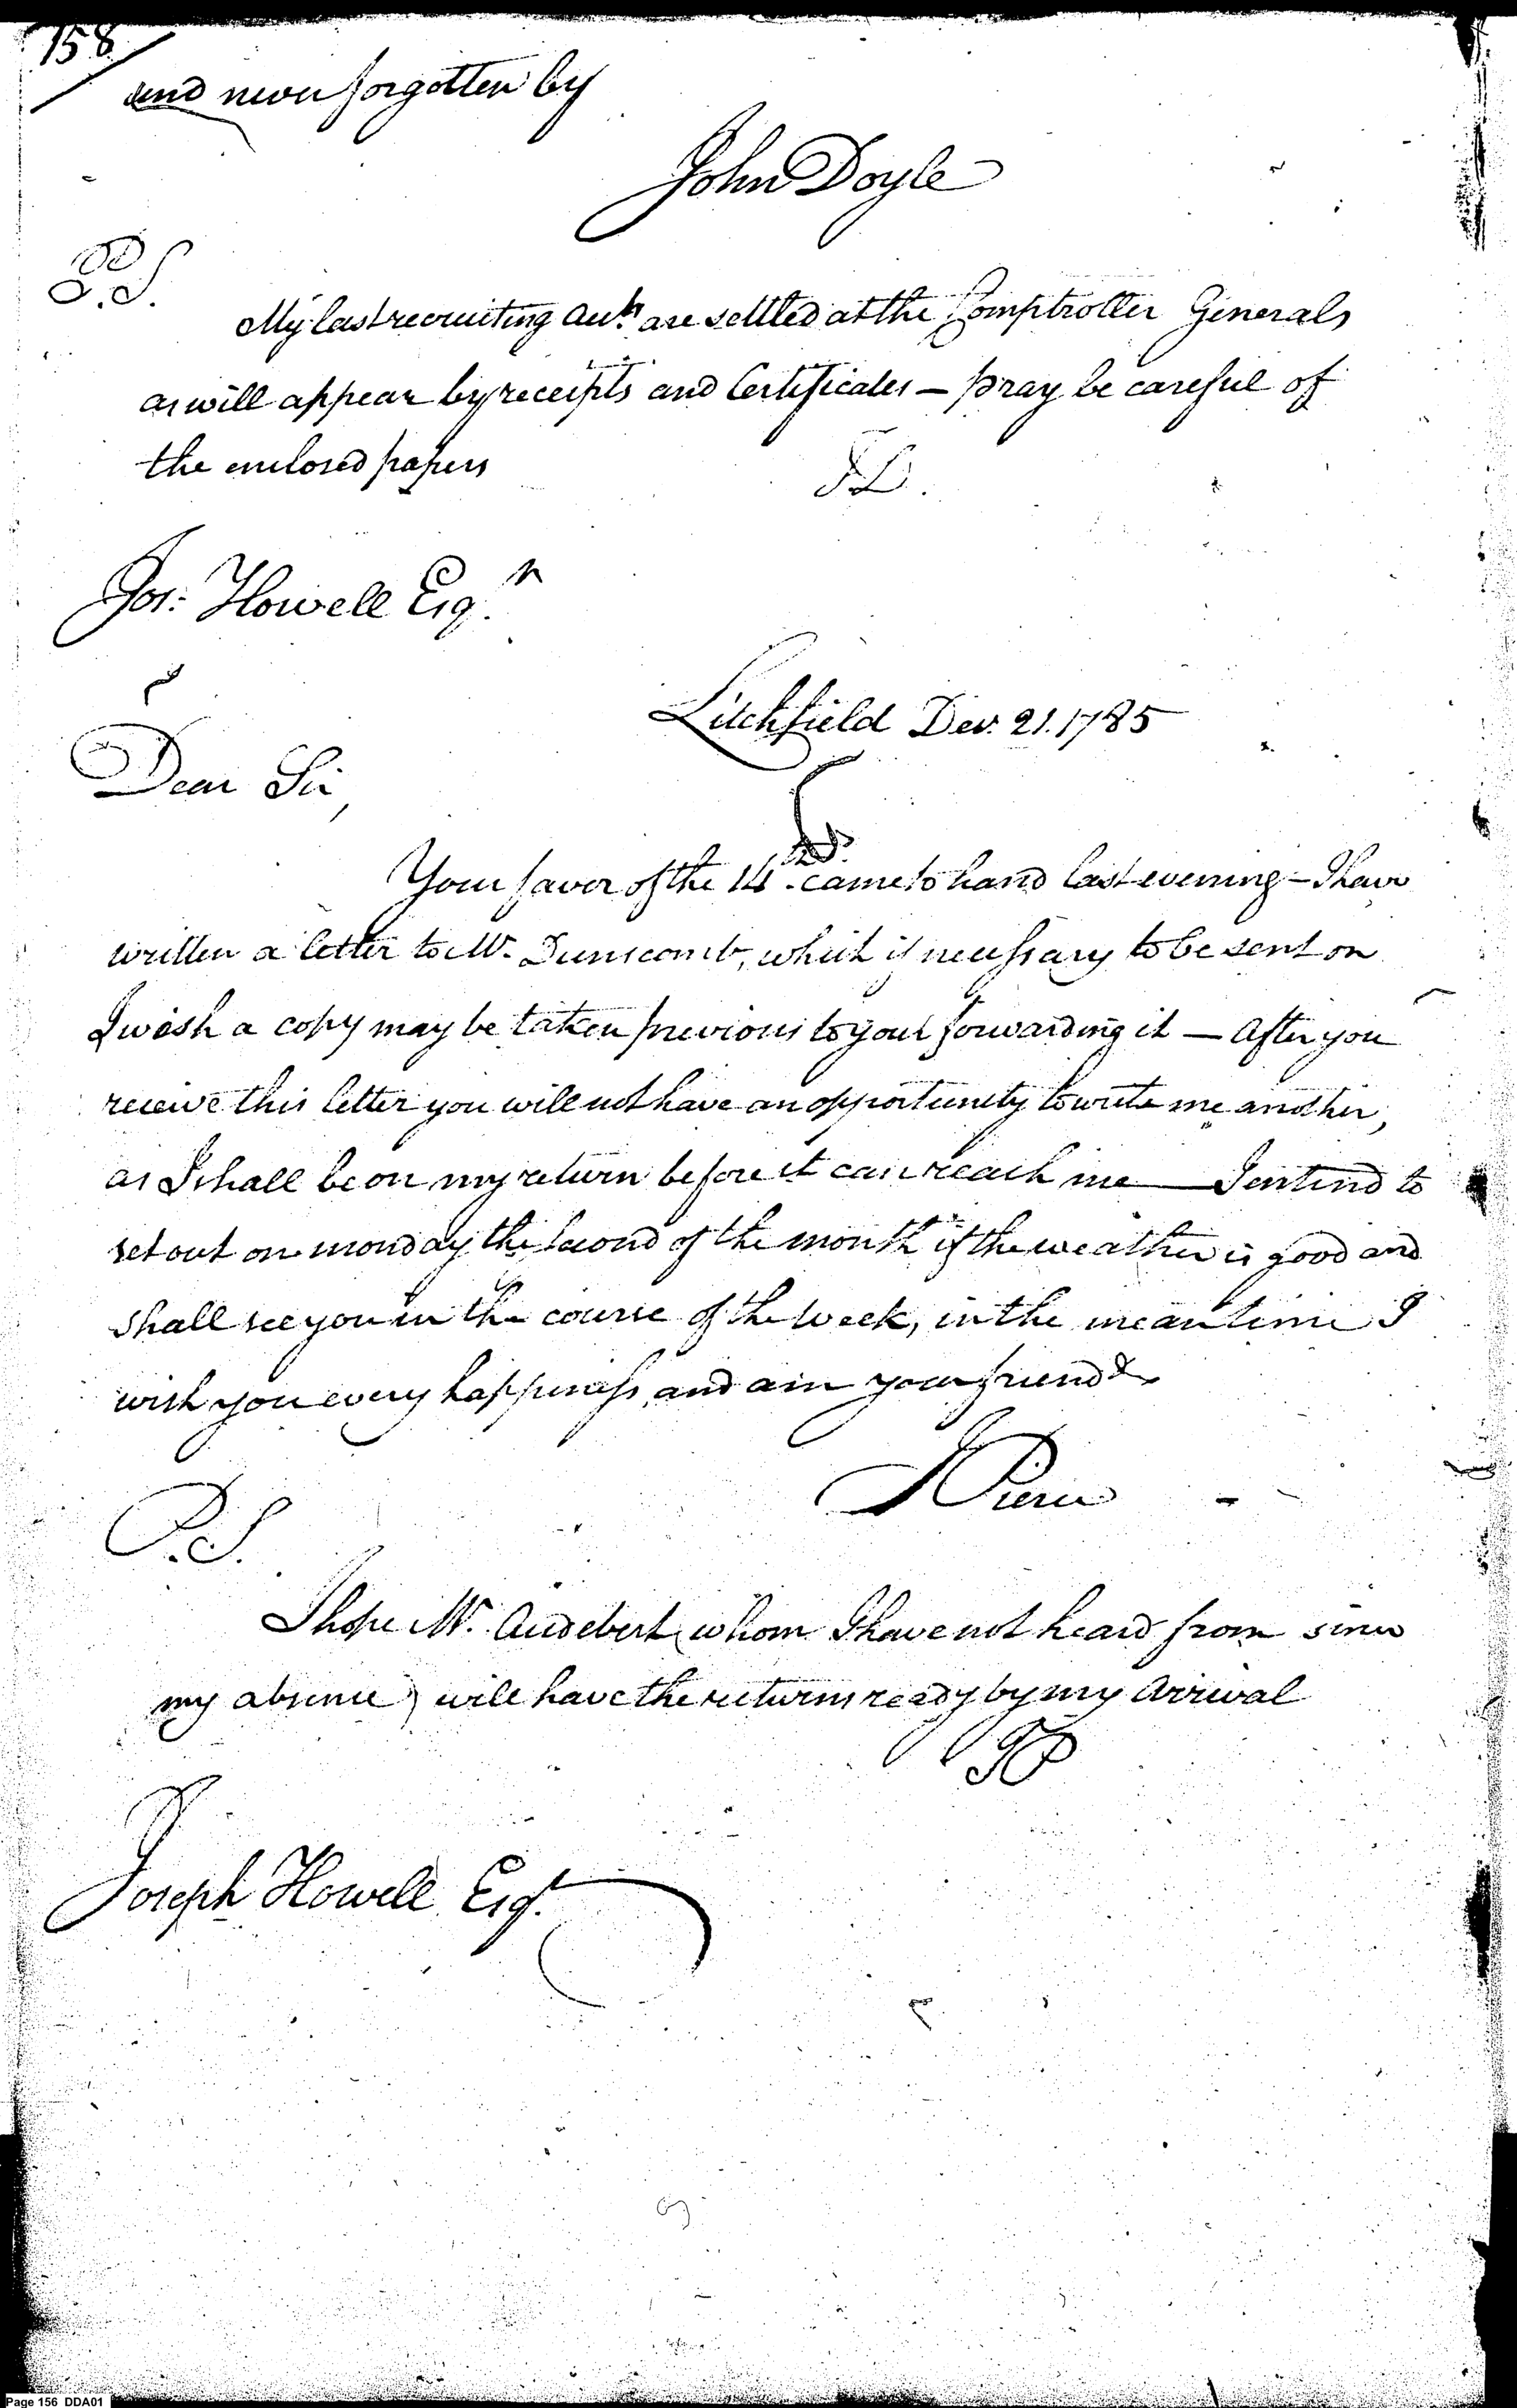 158
and never forgotten by
John Doyle
P.S.
My last recruiting Accts. are settled at the Comptroller Generals
as will appear by receipts and Certificates — pray be careful of
the enclosed papers
JD.
Jos: Howell Esqr.
Litchfield Decr. 21. 1785
Dear Sir,
Your favor of the 14th. came to hand last evening – I have
written a letter to Mr. Dunscomb, which if necessary to be sent on
I wish a copy may be taken previous to your forwarding it — After you
receive this letter you will not have an opportunity to write me another,
as I shall be on my return before it can reach me — I entend to
set out on monday the second of the month if the weather is good and
shall see you in the course of the week, in the mean time I
wish you every happiness, and am your friend &
J Pierce
P.S.
I hope Mr. Audebert (whom I have not heard from since
my absence) will have the returns ready by my arrival
JP
Joseph Howell Esqr.
Page 156 DDA01